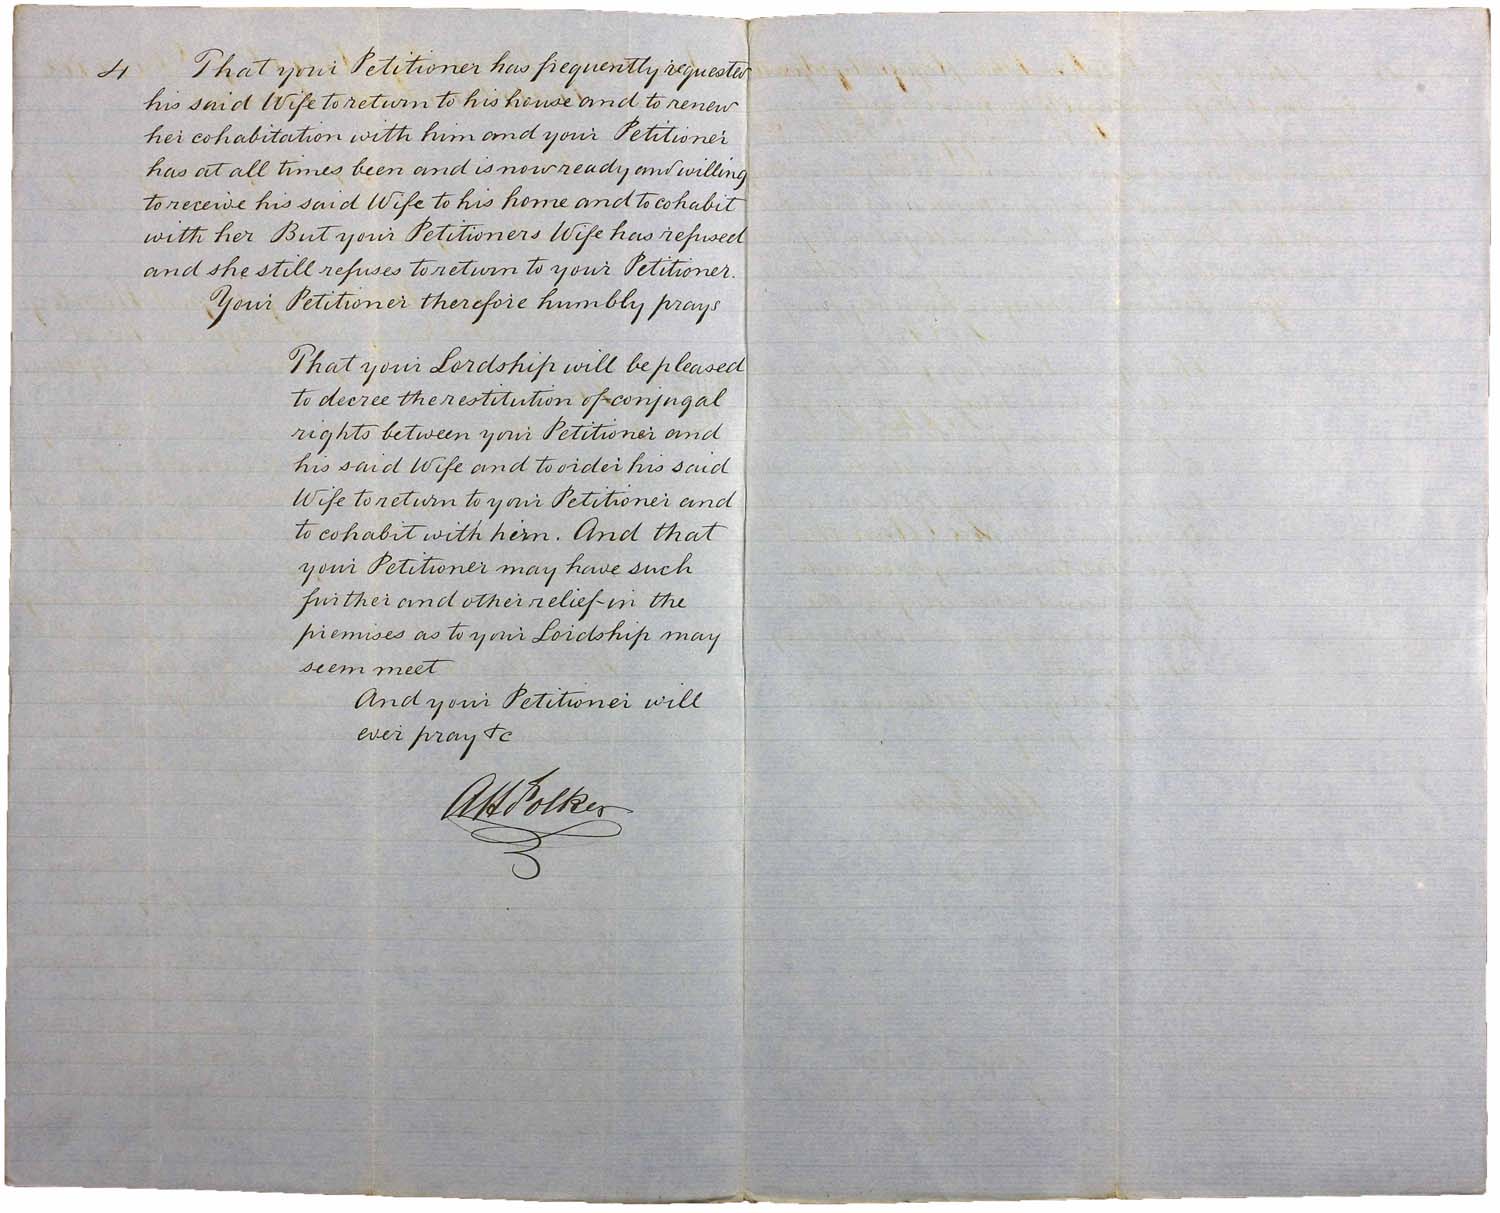 4 That your Petitioner has frequently requested
his said Wife to return to his house and to renew
her cohabitation with him and your Petitioner
has at all times been and is now ready and willing
to receive his said Wife to his home and to cohabit
with her But your Petitioners Wife has refused
and she still refuses to return to your Petitioner.
Your Petitioner therefore humbly prays
That your Lordship will be pleased
to decree the restitution of conjugal
rights between your Petitioner and
his said Wife and to order his said
Wife to return to your Petitioner and
to cohabit with him. And that
your Petitioner may have such
further and other relief in the
premises as to your Lordship may
seem meet
And your Petitioner will
ever pray &c
AH Folker